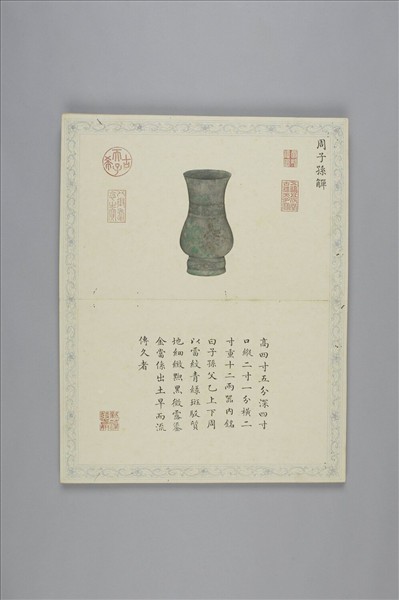 周子孫觶
古希天子
八徵耄念之寶
高四寸五分深四寸
口縱二寸一分橫二
寸重十二兩器内銘
曰子孫父乙上下周
以雷紋青綠斑駁質
地細緻黝黑微露
金當係出土早而流
傳久者